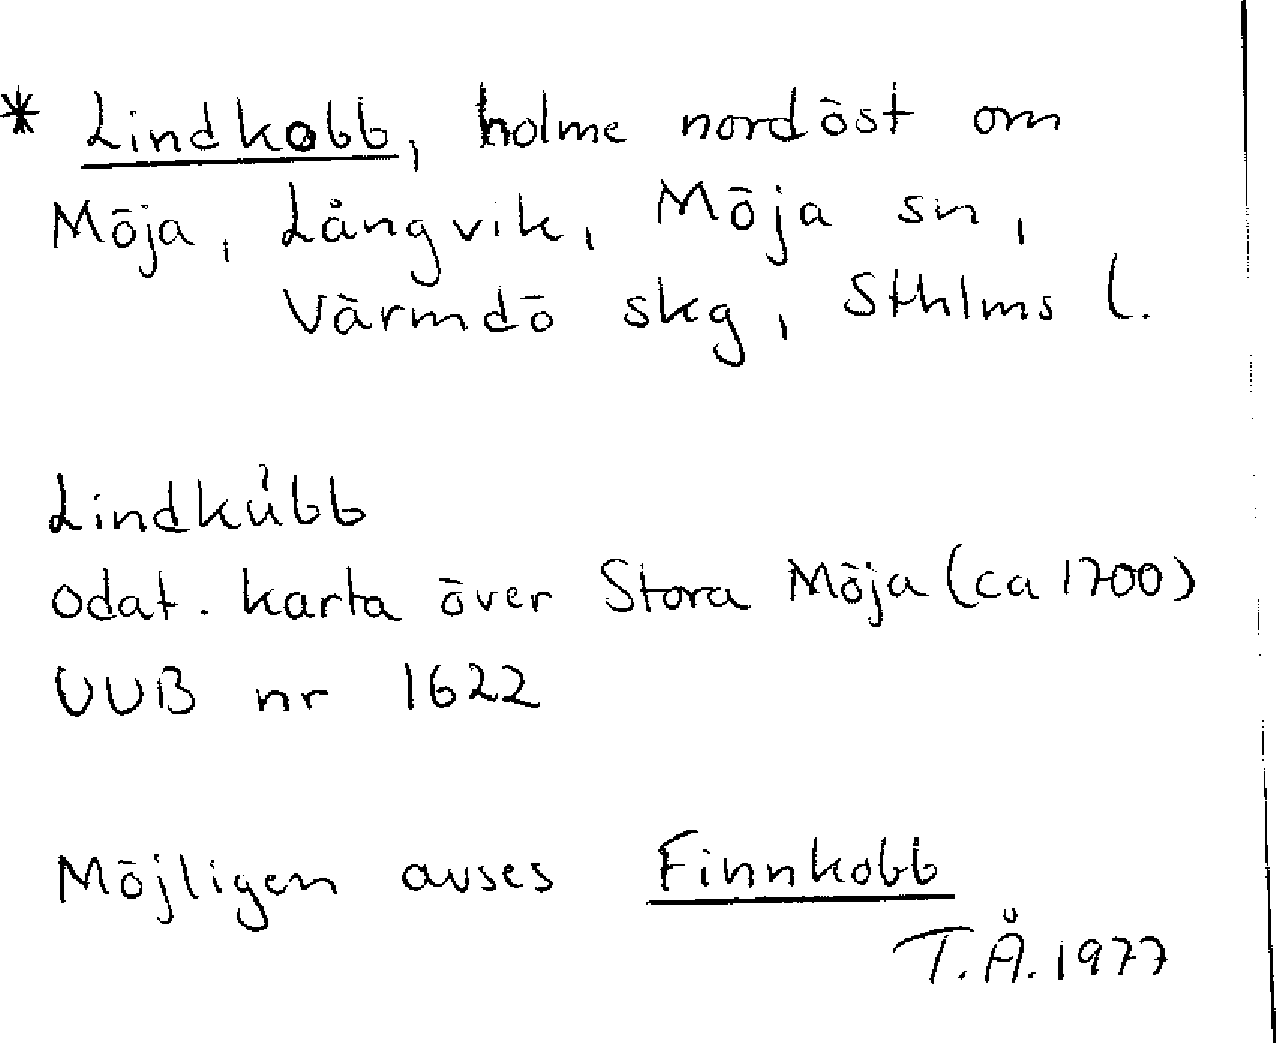 * Lindkobb, holme nordöst om
Möja, Långvik, Möja sn,
Värmdö skg, Sthlms l.
Lindkůbb
odat. karta över Stora Möja (ca 1700)
UUB nr 1622
Möjligen avses Finnkobb
T.Å. 1977